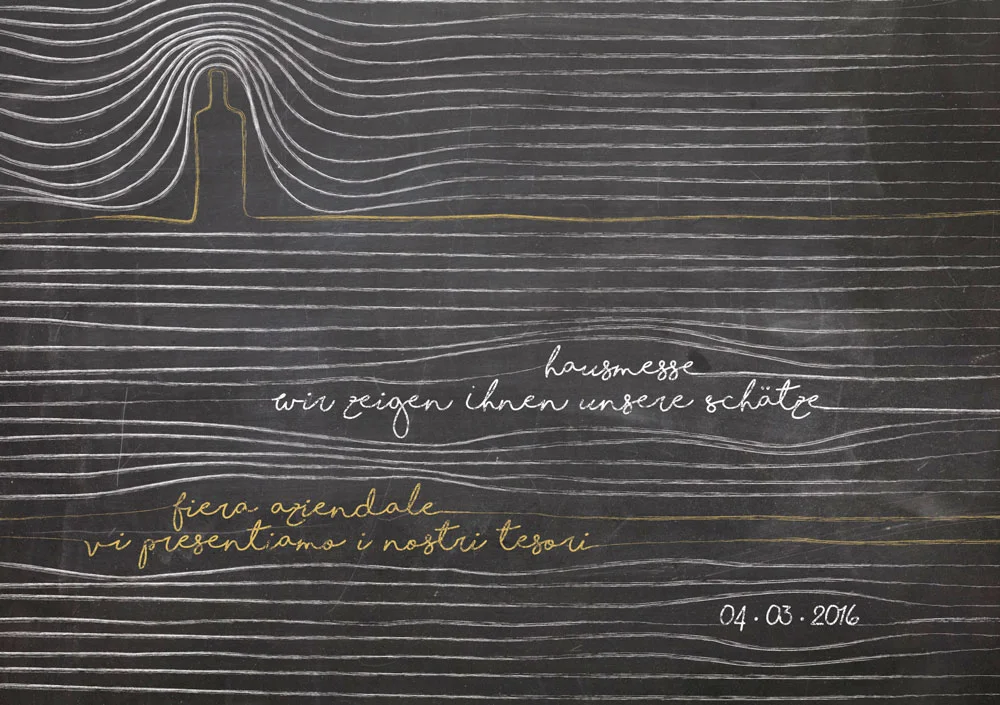 hausmesse
wir zeigen ihnen unsere schätze
fiera aziendale
vi presentiamo i nostri tesori
04 · 03 · 2016